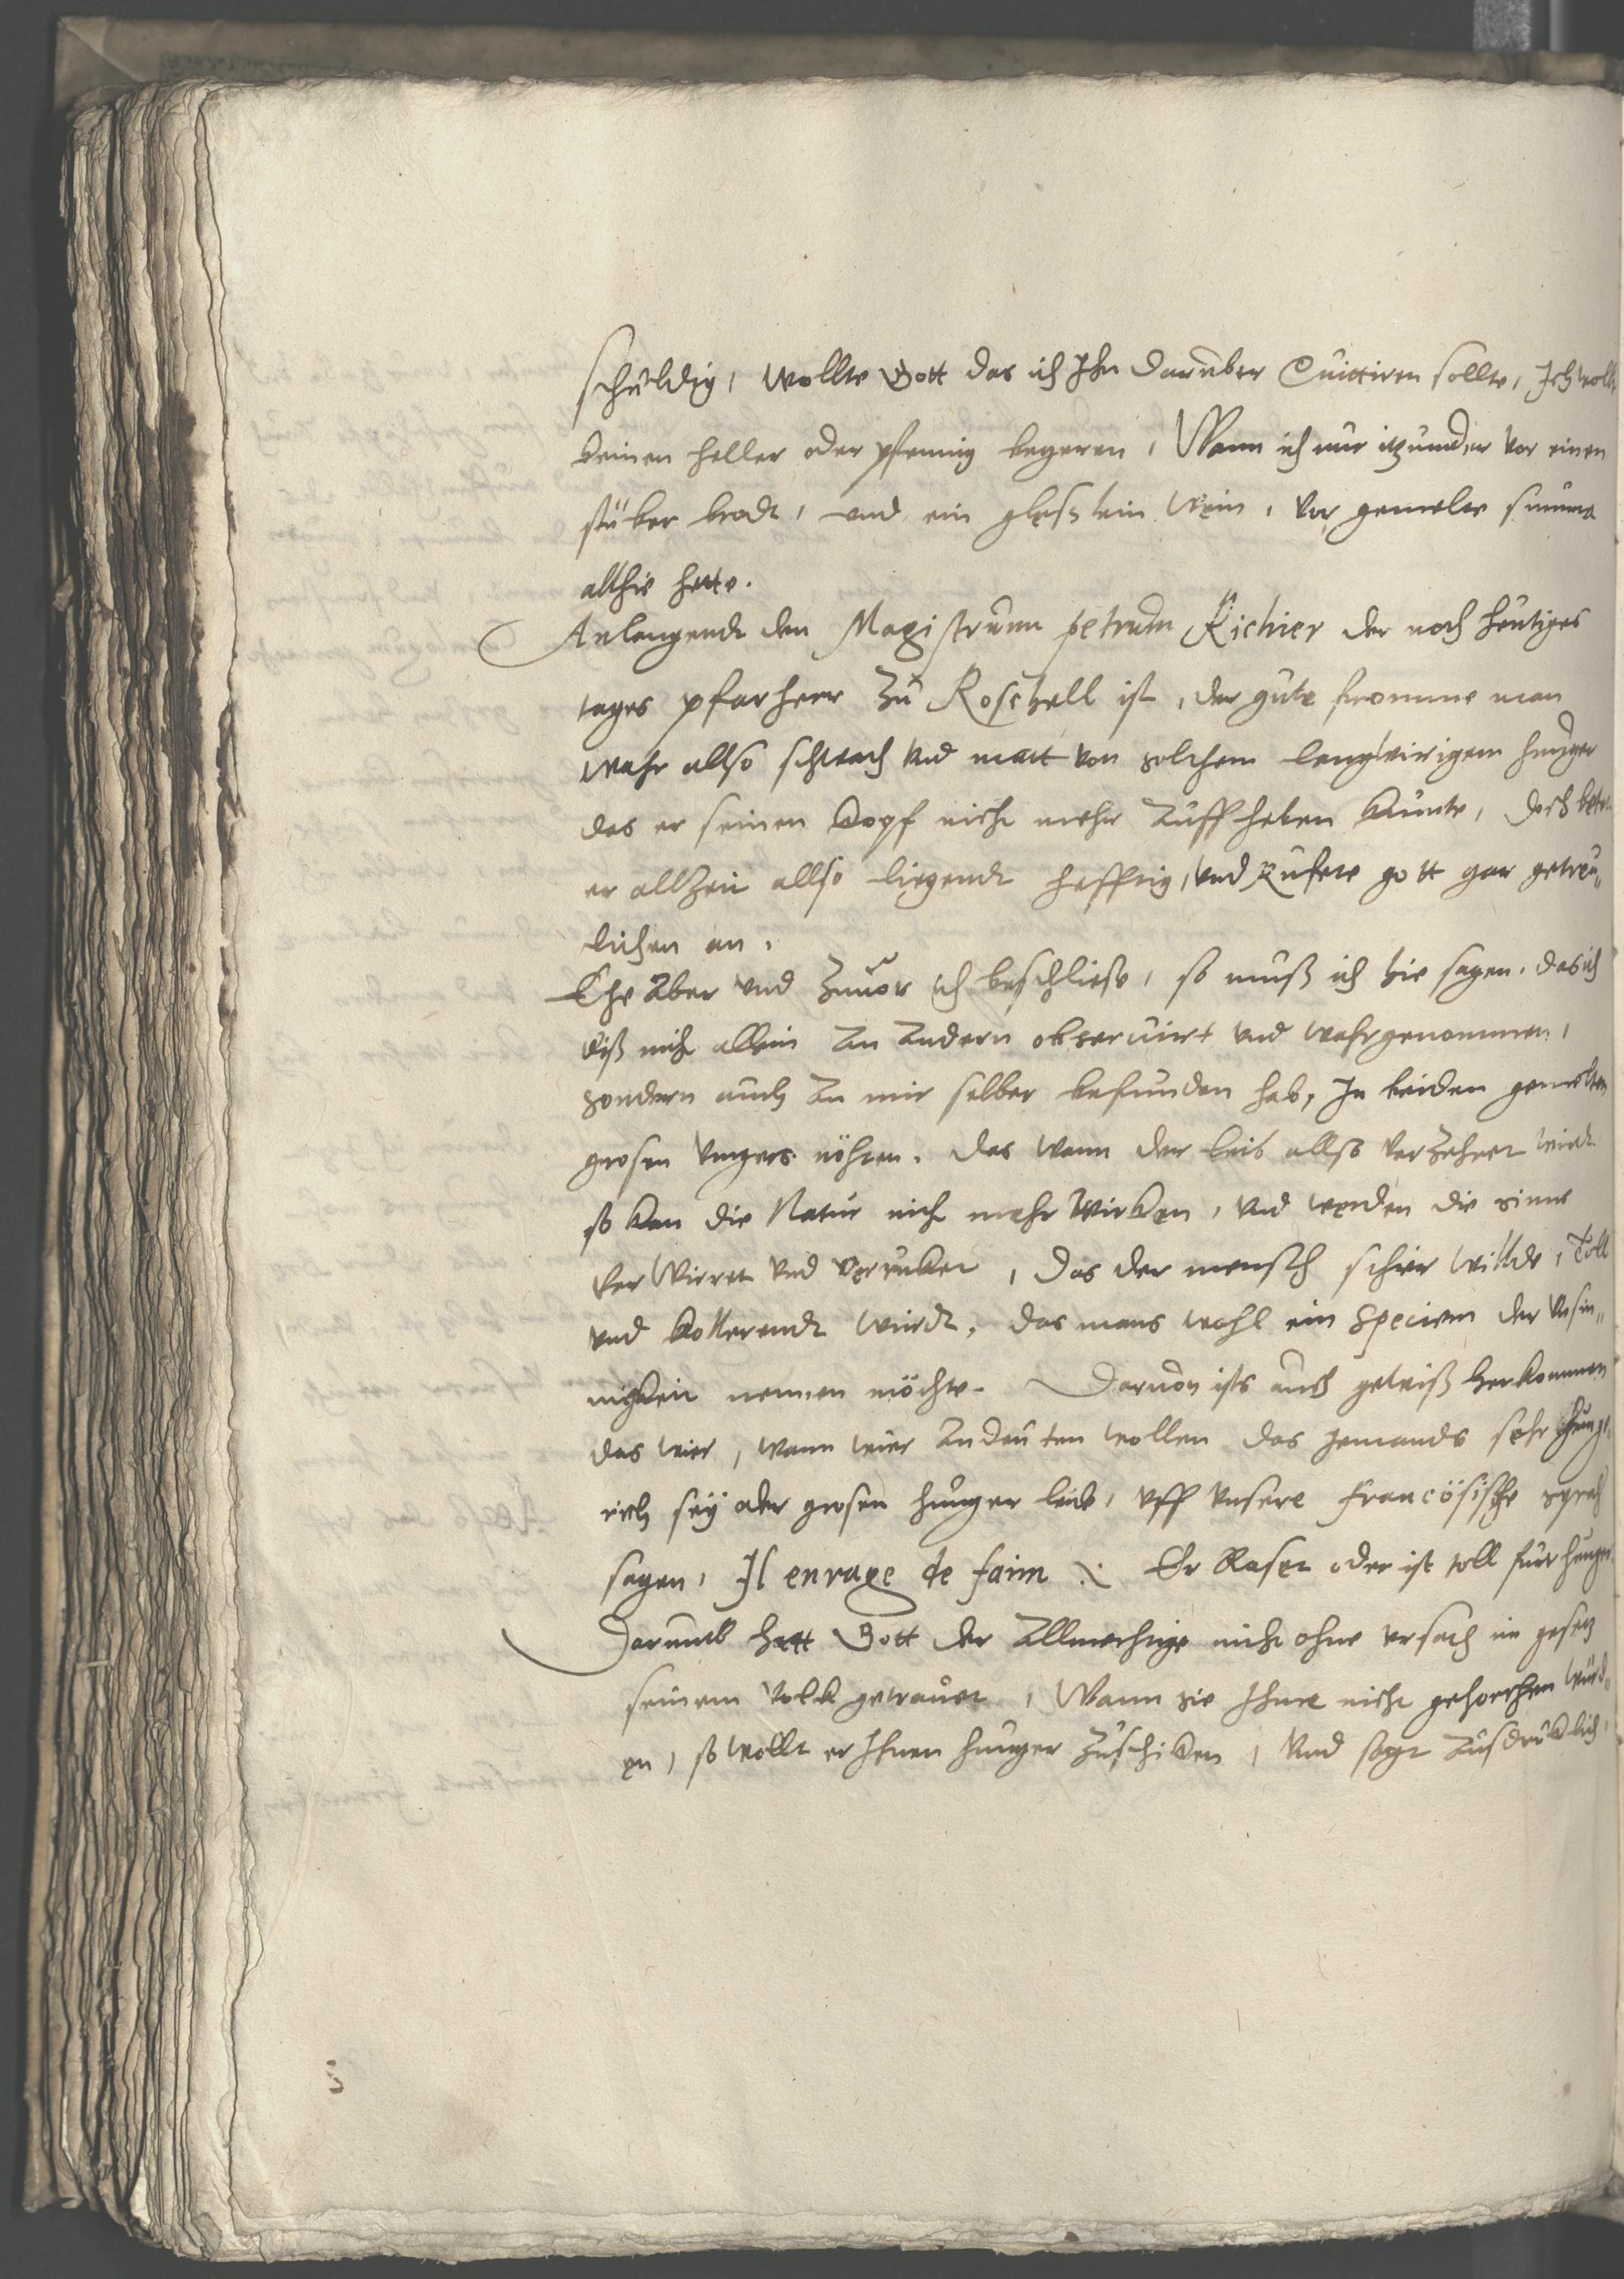 schuldig, wollte Gott das ich Ihn darüber Quittiren sollte, Ich wollt
keinen heller oder pfennig begeren, Wann ich nur itzunder vor einen
stüber brodt, und ein gleßlein Wein, vor gemelte summa
allhie hette.
Anlangendt den Magistrum petrum Richier der noch heutiges
tages pfarherr zu Roschell ist, der gute fromme man
wahr allso schwach und matt von solchem langwirigem hunger
das er seinen kopf nicht mehr auffheben kunte, doch betet
er allzeit allso liegendt hefftig, und Rufete gott gar getreu„
lichen an.
Ehe aber und zuvor ich beschließe, so muß ich hie sagen, das ich
diß nicht allein an andern observirt und wahrgenommen,
sondern auch an mir selber befunden hab, In beiden gemelten
grosen hungers nöhten. das wann der leib allso verzehret wirdt
so kan die Natur nicht mehr wirken, und werden die sinne
verwirret und verrucket, das der mensch schier willde, toll
und kollerendt wirdt, das mans wohl ein speciem der unsin„
nigkeit nennen möchte. Darvon ists auch gewiß herkommen
das wier, wann wier andeuten wollen das jemands sehr hung„
rich seÿ oder grosen hunger leide, uff unsere francösische sprach
sagen, Il enrage de faim ⁒ Er Raset oder ist toll für hunger.
Darumb hatt Gott der Allmechtige nicht ohne ursach im gesetz
seinem volck getrauet, Wann sie Ihme nicht gehorchen würd„
en, so wollt er Ihnen hunger zuschicken, und sagt ausdrücklich,